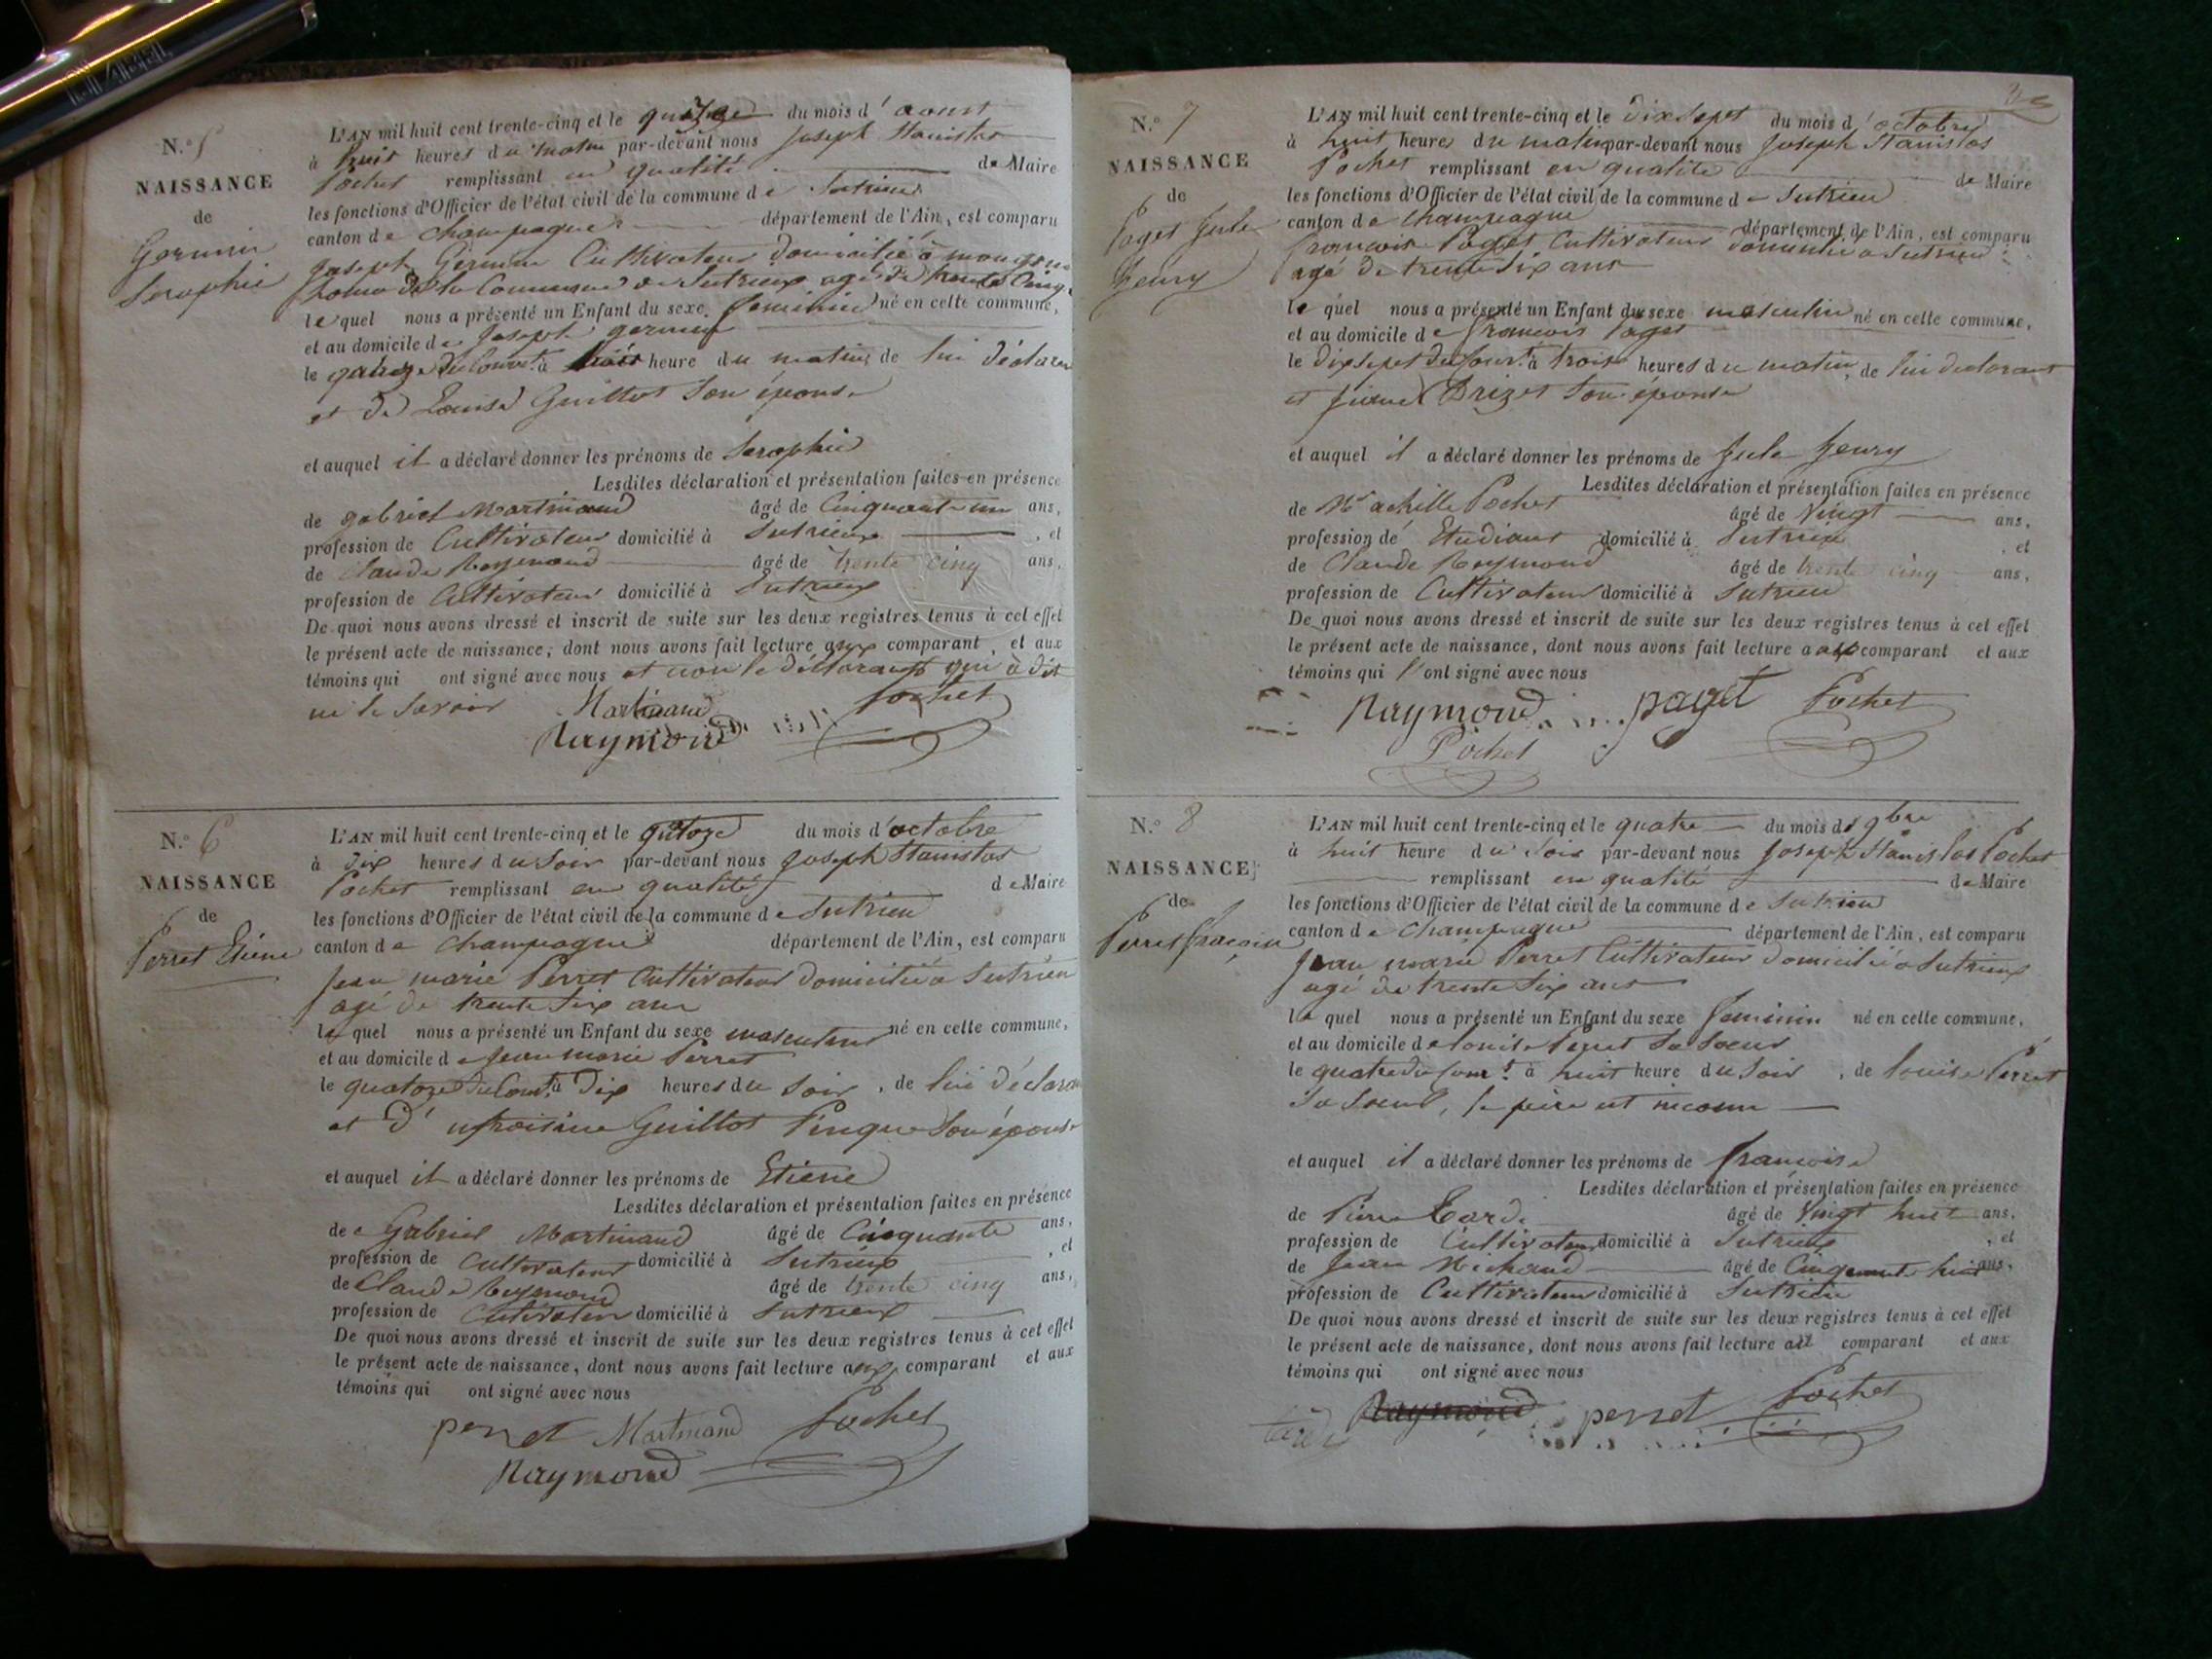 N.° 5
NAISSANCE
de
Germain
Séraphie
L'AN mil huit cent trente-cinq et le quinze du mois d'aoust
à huit heures du matin par-devant nous Joseph Stanislas
Pochet remplissant en qualité de Maire
les fonctions d'Officier de l'état civil de la commune de Sutrieu
canton de Champagne département de l'Ain, est comparu
Joseph Germain Cultivateur domicilié à
de la Commune de Sutrieux agé de trente Cinq
lequel nous a présenté un Enfant du sexe feminin né en cette commune,
et au domicile de Joseph germain
le quinze du Cour.t à trois heure du matin, de lui déclarant
et de Louise Guillot Son épouse
et auquel il a déclaré donner les prénoms de Seraphie
Lesdites déclaration et présentation faites en présence
de gabriel Martinand âgé de Cinquante un ans,
profession de Cultivateur domicilié à Sutrieux , et
de Claude Reymond âgé de trente cinq ans,
profession de Cultivateur domicilié à Sutrieux
De quoi nous avons dressé et inscrit de suite sur les deux registres tenus à cet effet
le présent acte de naissance, dont nous avons fait lecture aux comparant, et aux
témoins qui ont signé avec nous et non le déclarant qui a dit
ne le Savoir Martinand Pochet
Raymond
N.° 6
NAISSANCE
de
Perret Etiene
L'AN mil huit cent trente-cinq et le qutoze du mois d'octobre
à dix heures du Soir par-devant nous Joseph Stanislas
Pochet remplissant en qualité de Maire
les fonctions d'Officier de l'état civil de la commune de Sutrieu
canton de Champagne département de l'Ain, est comparu
Jean marie Perret Cultivateur domicilié a Sutrieu
agé de trente Six ans
lequel nous a présenté un Enfant du sexe masculin né en cette commune,
et au domicile de Jean marie Perret
le quatoze du Cour.t à Dix heures du Soir, de lui déclarant
et d' Guillot Pingue Son épouse
et auquel il a déclaré donner les prénoms de Etiene
Lesdites déclaration et présentation faites en présence
de Gabriel Martinand âgé de Cinquante ans,
profession de Cultivateur domicilié à Sutrieux , et
de Claude Reymond âgé de trente cinq ans,
profession de Cultivateur domicilié à Sutrieux
De quoi nous avons dressé et inscrit de suite sur les deux registres tenus à cet effet
le présent acte de naissance, dont nous avons fait lecture aux comparant et aux
témoins qui ont signé avec nous
perret Martinand Pochet
Raymond
N.° 7
NAISSANCE
de
Paget Jule
henry
L'AN mil huit cent trente-cinq et le dix Sept du mois d'octobre
à huit heure du matin par-devant nous Joseph Stanislas
Pochet remplissant en qualité de Maire
les fonctions d'Officier de l'état civil de la commune de Sutrieu
canton de Champagne département de l'Ain, est comparu
francois Paget Cultivateur domicilié a Sutrieu
agé de trente Six ans
lequel nous a présenté un Enfant du sexe masculin né en cette commune,
et au domicile de francois Paget
le dix sept du Cour.t à trois heures du matin, de lui declarant
et Drizet Son épouse
et auquel il a déclaré donner les prénoms de Jule henry
Lesdites déclaration et présentation faites en présence
de Mr achille Pochet âgé de Vingt ans,
profession de Etudiant domicilié à Sutrieu , et
de Claude Reymond âgé de trente cinq ans,
profession de Cultivateur domicilié à Sutrieu
De quoi nous avons dressé et inscrit de suite sur les deux registres tenus à cet effet
le présent acte de naissance, dont nous avons fait lecture aux comparant et aux
témoins qui l'ont signé avec nous
Raymond paget Pochet
Pochet
N.° 8
NAISSANCE
de
Perret
L'AN mil huit cent trente-cinq et le quatre du mois de 9bre
à huit heure du Soir par-devant nous Joseph Stanislas Pochet
remplissant en qualité de Maire
les fonctions d'Officier de l'état civil de la commune de Sutrieu
canton de Champagne département de l'Ain, est comparu
Jean marie Perret Cultivateur domicilié a Sutrieux
agé de trente Six ans
lequel nous a présenté un Enfant du sexe feminin né en cette commune,
et au domicile de louise Perret Sa Soeur
le quatre du Cour.t à huit heure du Soir, de louise Perret
Sa Soeur, le père est inconu
et auquel il a déclaré donner les prénoms de francoise
Lesdites déclaration et présentation faites en présence
de Pierre Tardi âgé de Vingt huit ans,
profession de Cultivateur domicilié à Sutrieux , et
de Jean Michaud âgé de Cinquante huit ans,
profession de Cultivateur domicilié à Sutrieu
De quoi nous avons dressé et inscrit de suite sur les deux registres tenus à cet effet
le présent acte de naissance, dont nous avons fait lecture au comparant et aux
témoins qui ont signé avec nous
Raymond perret Pochet